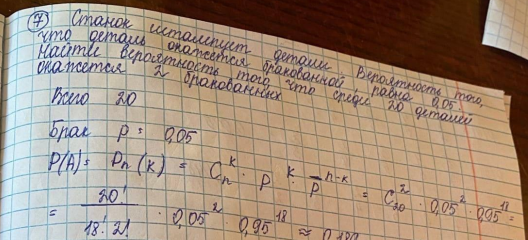 7 Станок штампует детали. Вероятность того,
что деталь окажется бракованной, равна 0,05.
Найти вероятность того, что среди 20 деталей
окажется 2 бракованных
Всего 20
Брак p = 0,05
P(A) = Pn(k) = C_n^k · p^k · p̅^{n-k} = C_20^2 · 0,05^2 · 0,95^18 =
= 20! / 18! · 2! · 0,05^2 · 0,95^18 ≈